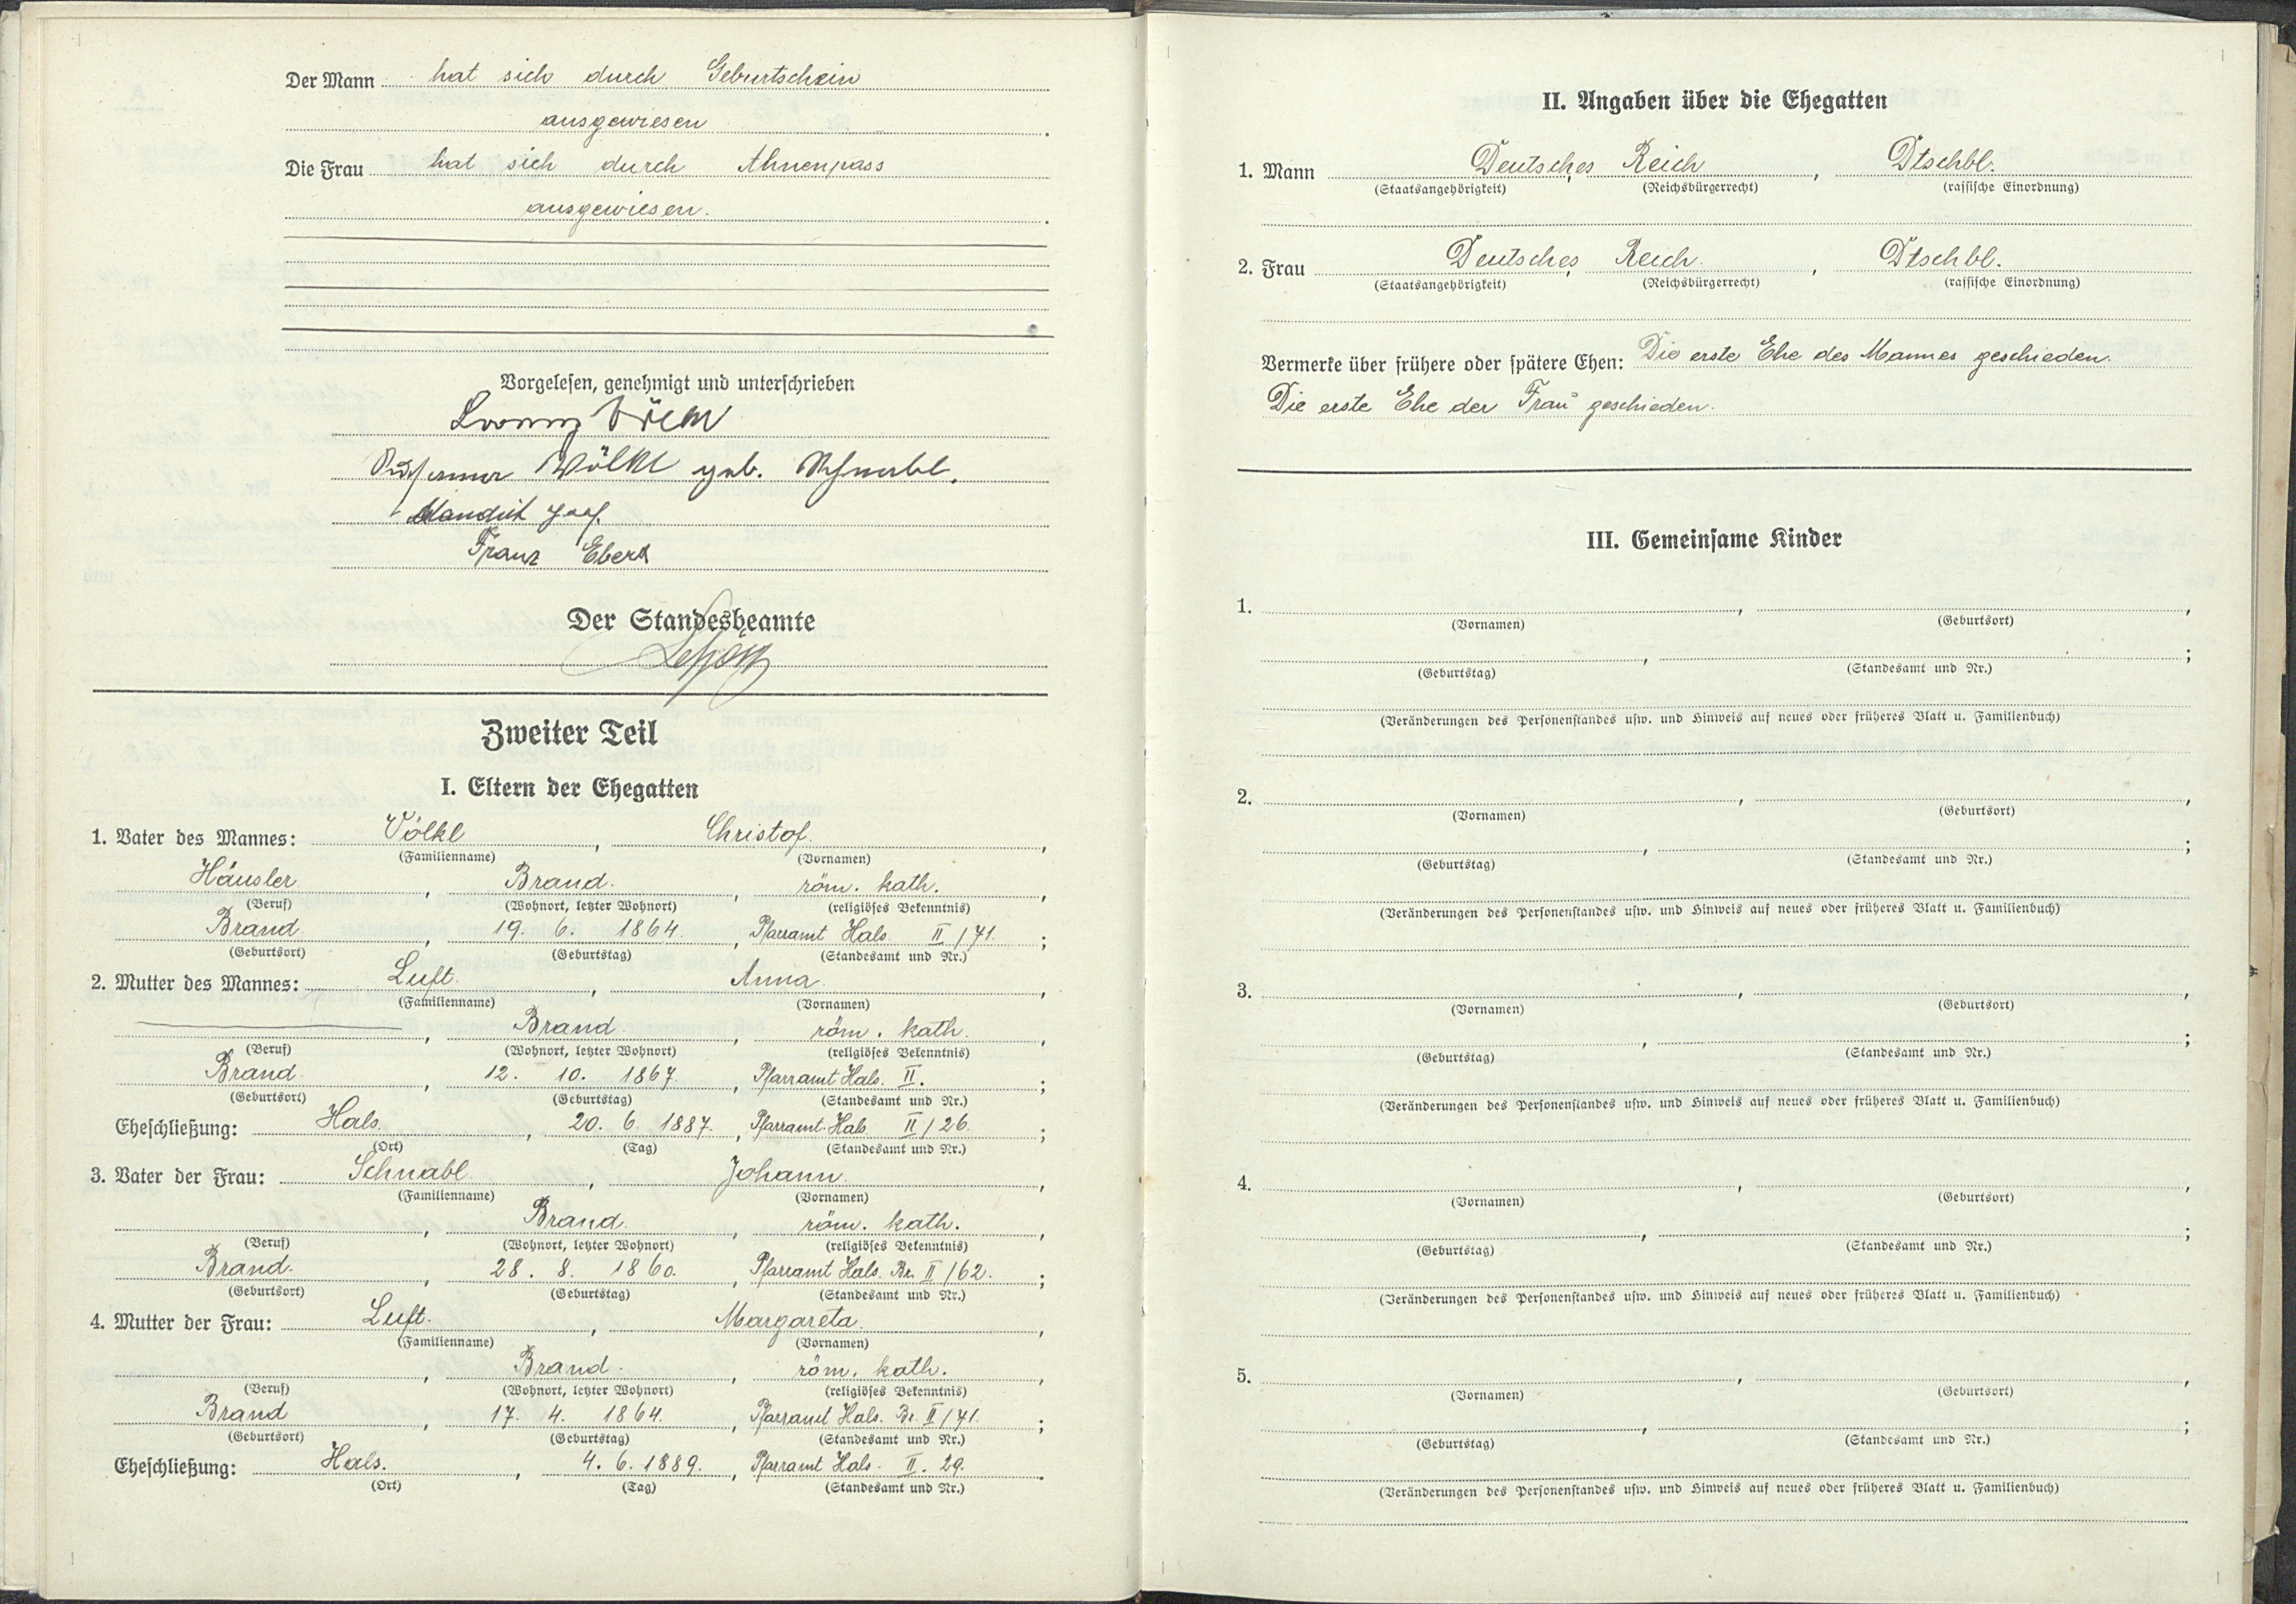 Der Mann hat sich durch Geburtschein
ausgewiesen.
Die Frau hat sich durch Ahnenpass
ausgewiesen.
Vorgelesen, genehmigt und unterschrieben
Wölkl geb. Schnabl.
Josef
Franz Ebert
Der Standesbeamte
Zweiter Teil
I. Eltern der Ehegatten
1. Vater des Mannes: Völkl, Christof,
(Familienname) (Vornamen)
Häusler, Brand, röm. kath.,
(Beruf) (Wohnort, letzter Wohnort) (religiöses Bekenntnis)
Brand, 19. 6. 1864, Pfarramt Hals II/71.;
(Geburtsort) (Geburtstag) (Standesamt und Nr.)
2. Mutter des Mannes: Luft, Anna,
(Familienname) (Vornamen)
Brand, röm. kath.,
(Beruf) (Wohnort, letzter Wohnort) (religiöses Bekenntnis)
Brand, 12. 10. 1867, Pfarramt Hals. II.;
(Geburtsort) (Geburtstag) (Standesamt und Nr.)
Eheschließung: Hals, 20. 6. 1887., Pfarramt Hals II/26.;
(Ort) (Tag) (Standesamt und Nr.)
3. Vater der Frau: Schnabl, Johann,
(Familienname) (Vornamen)
Brand, röm. kath.,
(Beruf) (Wohnort, letzter Wohnort) (religiöses Bekenntnis)
Brand, 28. 8. 1860., Pfarramt Hals. Br. II/62.;
(Geburtsort) (Geburtstag) (Standesamt und Nr.)
4. Mutter der Frau: Luft, Margareta,
(Familienname) (Vornamen)
Brand, röm. kath.,
(Beruf) (Wohnort, letzter Wohnort) (religiöses Bekenntnis)
Brand, 17. 4. 1864., Pfarramt Hals. Br. II/71.;
(Geburtsort) (Geburtstag) (Standesamt und Nr.)
Eheschließung: Hals., 4. 6. 1889., Pfarramt Hals. II. 29.
(Ort) (Tag) (Standesamt und Nr.)
II. Angaben über die Ehegatten
1. Mann Deutsches, Reich, Dtschbl.
(Staatsangehörigkeit) (Reichsbürgerrecht) (rassische Einordnung)
2. Frau Deutsches, Reich, Dtschbl.
(Staatsangehörigkeit) (Reichsbürgerrecht) (rassische Einordnung)
Vermerke über frühere oder spätere Ehen: Die erste Ehe des Mannes geschieden.
Die erste Ehe der Frau geschieden.
III. Gemeinsame Kinder
1. , ,
(Vornamen) (Geburtsort)
, ;
(Geburtstag) (Standesamt und Nr.)
(Veränderungen des Personenstandes usw. und Hinweis auf neues oder früheres Blatt u. Familienbuch)
2. , ,
(Vornamen) (Geburtsort)
, ;
(Geburtstag) (Standesamt und Nr.)
(Veränderungen des Personenstandes usw. und Hinweis auf neues oder früheres Blatt u. Familienbuch)
3. , ,
(Vornamen) (Geburtsort)
, ;
(Geburtstag) (Standesamt und Nr.)
(Veränderungen des Personenstandes usw. und Hinweis auf neues oder früheres Blatt u. Familienbuch)
4. , ,
(Vornamen) (Geburtsort)
, ;
(Geburtstag) (Standesamt und Nr.)
(Veränderungen des Personenstandes usw. und Hinweis auf neues oder früheres Blatt u. Familienbuch)
5. , ,
(Vornamen) (Geburtsort)
, ;
(Geburtstag) (Standesamt und Nr.)
(Veränderungen des Personenstandes usw. und Hinweis auf neues oder früheres Blatt u. Familienbuch)